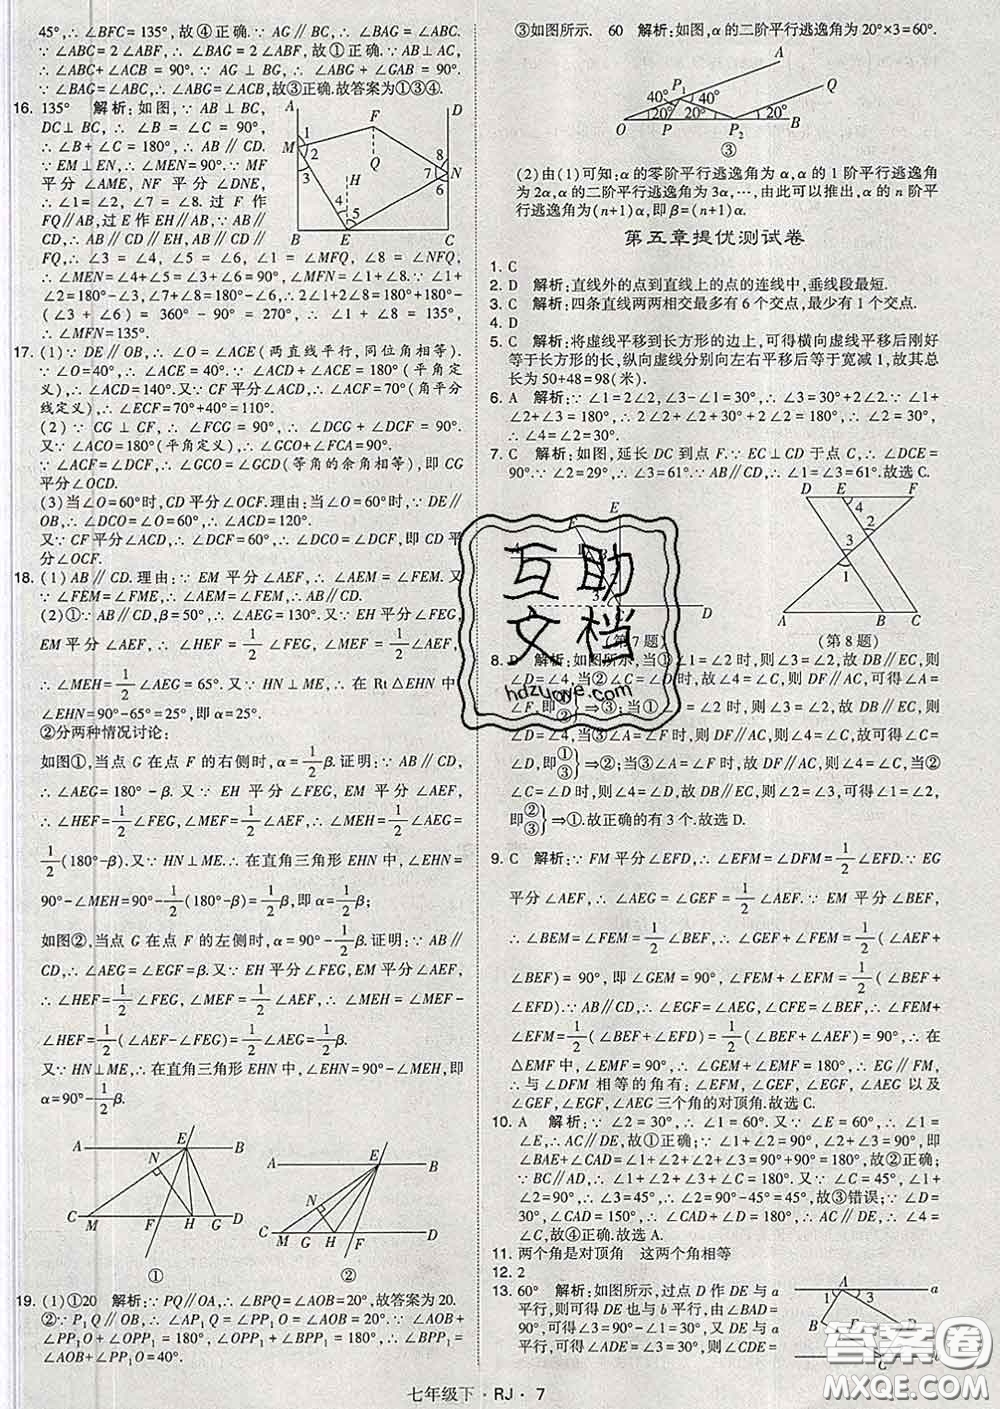 45°,∴∠BFC=135°,故④正确.∵BF平分∠ABC,∴
∠ABC=2∠ABF,∴∠BAG=2∠ABF,故①正确.∵AB⊥AC,
∴∠ABC+∠ACB=90°.∵AG⊥BG,∴∠ABG+∠GAB=90°.
∵∠BAG=∠ABC,∴∠ABG=∠ACB,故③正确.故答案为①③④.
16. 135° 解析:如图,∵AB⊥BC,
DC⊥BC,∴∠B=∠C=90°,
∴∠B+∠C=180°,∴AB∥CD.
∵EM⊥EN,∴∠MEN=90°.∵MF
平分∠AME,NF平分∠DNE,
∴∠1=∠2,∠7=∠8.过F作
FQ∥AB,过E作EH∥AB,∵AB∥
CD,∴AB∥CD∥EH,AB∥CD∥
FQ,∴∠3=∠4,∠5=∠6,∠1=∠MFQ,∠8=∠NFQ,∴
∠MEN=∠4+∠5=∠3+∠6=90°,∠MFN=∠1+∠8.∵∠1+
∠2+∠3=180°,∠6+∠7+∠8=180°,∴2∠1+2∠8=180°+180°-
(∠3+∠6)=360°-90°=270°,∴∠1+∠8=135°,
∴∠MFN=135°.
17. (1)∵DE∥OB,∴∠O=∠ACE(两直线平行,同位角相等).
∵∠O=40°,∴∠ACE=40°.∵∠ACD+∠ACE=180°(平角定
义),∴∠ACD=140°.又∵CF平分∠ACD,∴∠ACF=70°(角平分
线定义),∴∠ECF=70°+40°=110°.
(2)∵CG⊥CF,∴∠FCG=90°,∴∠DCG+∠DCF=90°.
又∵∠ACO=180°(平角定义),∴∠GCO+∠FCA=90°.
∵∠ACF=∠DCF,∴∠GCO=∠GCD(等角的余角相等),即CG
平分∠OCD.
(3)当∠O=60°时,CD平分∠OCF.理由:当∠O=60°时,∵DE∥
OB,∴∠DCO=∠O=60°,∴∠ACD=120°.
又∵CF平分∠ACD,∴∠DCF=60°,∴∠DCO=∠DCF,即CD平分
∠OCF.
18. (1)AB∥CD.理由:∵EM平分∠AEF,∴∠AEM=∠FEM.又
∵∠FEM=∠FME,∴∠AEM=∠FME,∴AB∥CD.
(2)①∵AB∥CD,β=50°,∴∠AEG=130°.又∵EH平分∠FEG,
EM平分∠AEF,∴∠HEF=1/2∠FEG,∠MEF=1/2∠AEF,
∴∠MEH=1/2∠AEG=65°.又∵HN⊥ME,∴在Rt△EHN中,
∠EHN=90°-65°=25°,即α=25°.
②分两种情况讨论:
如图①,当点G在点F的右侧时,α=1/2β.证明:∵AB∥CD,
∴∠AEG=180°-β.又∵EH平分∠FEG,EM平分∠AEF,
∴∠HEF=1/2∠FEG,∠MEF=1/2∠AEF,∴∠MEH=1/2∠AEG=
1/2(180°-β).又∵HN⊥ME,∴在直角三角形EHN中,∠EHN=
90°-∠MEH=90°-1/2(180°-β)=1/2β,即α=1/2β;
如图②,当点G在点F的左侧时,α=90°-1/2β.证明:∵AB∥
CD,∴∠AEG=∠EGF=β.又∵EH平分∠FEG,EM平分∠AEF,
∴∠HEF=1/2∠FEG,∠MEF=1/2∠AEF,∴∠MEH=∠MEF-
∠HEF=1/2(∠AEF-∠FEG)=1/2∠AEG=1/2β.
又∵HN⊥ME,∴在直角三角形EHN中,∠EHN=90°-∠MEH,即
α=90°-1/2β.
① ②
19. (1)①20 解析:∵PQ∥OA,∴∠BPQ=∠AOB=20°,故答案为20.
②∵P₁Q∥OB,∴∠AP₁Q=∠PP₁O=∠AOB=20°.∵∠AOB+
∠PP₁O+∠OPP₁=180°,∠OPP₁+∠BPP₁=180°,∴∠BPP₁=
∠AOB+∠PP₁O=40°.
③如图所示. 60 解析:如图,α的二阶平行逃逸角为20°×3=60°.
③
(2)由(1)可知:α的零阶平行逃逸角为α,α的1阶平行逃逸角
为2α,α的二阶平行逃逸角为3α,…,由此可以推出,α的n阶平
行逃逸角为(n+1)α,即β=(n+1)α.
第五章提优测试卷
1. C
2. D 解析:直线外的点到直线上的点的连线中,垂线段最短.
3. C 解析:四条直线两两相交最多有6个交点,最少有1个交点.
4. D
5. C 解析:将虚线平移到长方形的边上,可得横向虚线平移后刚好
等于长方形的长,纵向虚线分别向左右平移后等于宽减1,故其总
长为50+48=98(米).
6. A 解析:∵∠1=2∠2,∠3-∠1=30°,∴∠3=30°+2∠2.∵∠1+
∠2+∠3=180°,∴2∠2+∠2+30°+2∠2=180°,∴∠2=30°,
∴∠4=∠2=30°.
7. C 解析:如图,延长DC到点F.∵EC⊥CD于点C,∴∠DCE=
90°.∵∠2=29°,∴∠3=61°.∵AB∥CD,∴∠1=∠3=61°.故选C.
(第7题) (第8题)
8. D 解析:如图所示,当①∠1=∠2,则∠3=∠2,故DB∥EC,则
∠D=∠4,当②∠C=∠D,故∠4=∠C,则DF∥AC,可得∠A=
∠F,即①②}⇒③;当①∠1=∠2,则∠3=∠2,故DB∥EC,则
∠D=∠4,当③∠A=∠F,则DF∥AC,故∠4=∠C,故可得∠C=
∠D,即①③}⇒②;当③∠A=∠F,故DF∥AC,则∠4=∠C,当②
∠C=∠D,则∠4=∠D,故DB∥EC,则∠2=∠3,可得∠1=∠2,
即②③}⇒①.故正确的有3个.故选D.
9. C 解析:∵FM平分∠EFD,∴∠EFM=∠DFM=1/2∠EFD.∵EG
平分∠AEF,∴∠AEG=∠GEF=1/2∠AEF.∵EM平分∠BEF,
∴∠BEM=∠FEM=1/2∠BEF,∴∠GEF+∠FEM=1/2(∠AEF+
∠BEF)=90°,即∠GEM=90°,∠FEM+∠EFM=1/2(∠BEF+
∠EFD).∵AB∥CD,∴∠EGF=∠AEG,∠CFE=∠BEF,∴∠FEM+
∠EFM=1/2(∠BEF+∠EFD)=1/2(∠BEF+∠AEF)=90°,∴在
△EMF中,∠EMF=90°,∴∠GEM+∠EMF=180°,∴EG∥FM,
∴与∠DFM相等的角有:∠EFM,∠GEF,∠EGF,∠AEG以及
∠GEF,∠EGF,∠AEG三个角的对顶角.故选C.
10. A 解析:∵∠2=30°,∴∠1=60°.又∵∠E=60°,∴∠1=
∠E,∴AC∥DE,故①正确;∵∠1+∠2=90°,∠2+∠3=90°,即
∠BAE+∠CAD=∠1+∠2+∠2+∠3=90°+90°=180°,故②正确;
∵BC∥AD,∴∠1+∠2+∠3+∠C=180°.又∵∠C=45°,∠1+
∠2=90°,∴∠3=45°,∴∠2=90°-45°=45°,故③错误;∵∠D=
30°,∠CAD=150°,∴∠CAD+∠D=180°,∴AC∥DE,∴∠4=
∠C,故④正确.故选A.
11. 两个角是对顶角 这两个角相等
12. 2
13. 60° 解析:如图所示,过点D作DE与a
平行,则可得DE也与b平行,由∠BAD=
90°,可得∠1+∠3=90°,∴∠3=60°.由平
行可得∠ADE=∠3=60°.由
七年级下·RJ·7
互助文档
hdzuoye.com
答案圈
MXQE.COM